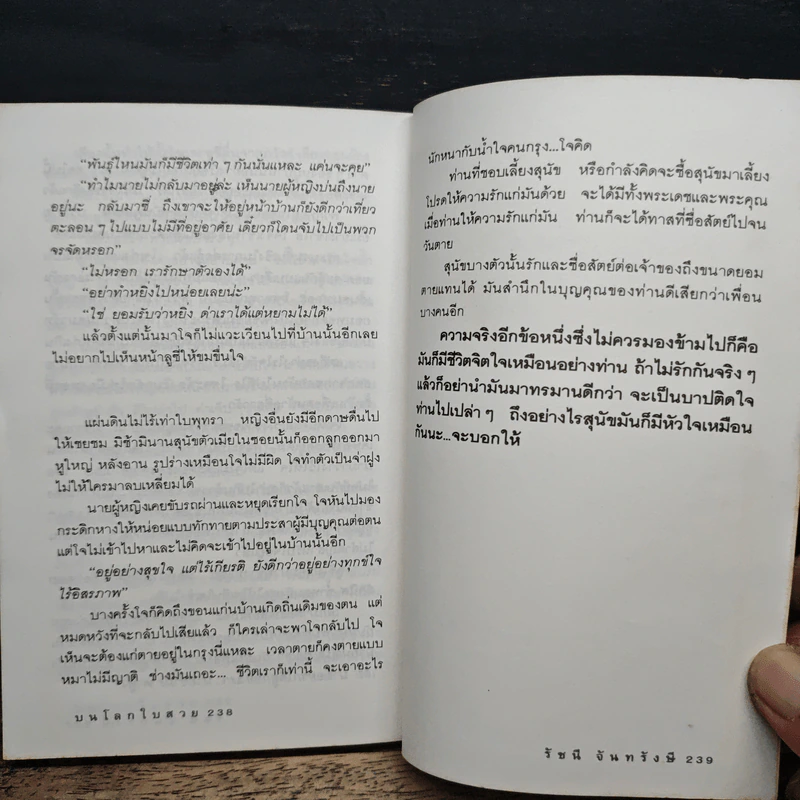 “พันธุ์ไหนมันก็มีชีวิตเท่า ๆ กันนั่นแหละ แค่นจะคุย”
“ทำไมนายไม่กลับมาอยู่ล่ะ เห็นนายผู้หญิงบ่นถึงนาย
อยู่นะ กลับมาซี่ ถึงเขาจะให้อยู่หน้าบ้านก็ยังดีกว่าเที่ยว
ตะลอน ๆ ไปแบบไม่มีที่อยู่อาศัย เดี๋ยวก็โดนจับไปเป็นพวก
จรจัดหรอก”
“ไม่หรอก เรารักษาตัวเองได้”
“อย่าทำหยิ่งไปหน่อยเลยน่ะ”
“ใช่ ยอมรับว่าหยิ่ง ด่าเราได้แต่หยามไม่ได้”
แล้วตั้งแต่นั้นมาใจก็ไม่แวะเวียนไปที่บ้านนั้นอีกเลย
ไม่อยากไปเห็นหน้าลูซี่ให้ขมขื่นใจ
แผ่นดินไม่ไร้เท่าใบพุทรา หญิงอื่นยังมีอีกดาษดื่นไป
ให้เชยชม มิช้ามินานสุนัขตัวเมียในซอยนั้นก็ออกลูกออกมา
หูใหญ่ หลังอาน รูปร่างเหมือนใจไม่มีผิด ใจทำตัวเป็นจ่าฝูง
ไม่ให้ใครมาลบเหลี่ยมได้
นายผู้หญิงเคยขับรถผ่านและหยุดเรียกใจ ใจหันไปมอง
กระดิกหางให้หน่อยแบบทักทายตามประสาผู้มีบุญคุณต่อตน
แต่ใจไม่เข้าไปหาและไม่คิดจะเข้าไปอยู่ในบ้านนั้นอีก
“อยู่อย่างสุขใจ แต่ไร้เกียรติ ยังดีกว่าอยู่อย่างทุกข์ใจ
ไร้อิสรภาพ”
บางครั้งใจก็คิดถึงขอนแก่นบ้านเกิดถิ่นเดิมของตน แต่
หมดหวังที่จะกลับไปเสียแล้ว ก็ใครเล่าจะพาใจกลับไป ใจ
เห็นจะต้องแก่ตายอยู่ในกรุงนี่แหละ เวลาตายก็คงตายแบบ
หมาไม่มีญาติ ช่างมันเถอะ... ชีวิตเราก็เท่านี้ จะเอาอะไร
บนโลกใบสวย 238
นักหนากับน้ำใจคนกรุง...ใจคิด
ท่านที่ชอบเลี้ยงสุนัข หรือกำลังคิดจะซื้อสุนัขมาเลี้ยง
โปรดให้ความรักแก่มันด้วย จะได้มีทั้งพระเดชและพระคุณ
เมื่อท่านให้ความรักแก่มัน ท่านก็จะได้ทาสที่ซื่อสัตย์ไปจน
วันตาย
สุนัขบางตัวนั้นรักและซื่อสัตย์ต่อเจ้าของถึงขนาดยอม
ตายแทนได้ มันสำนึกในบุญคุณของท่านดีเสียกว่าเพื่อน
บางคนอีก
ความจริงอีกข้อหนึ่งซึ่งไม่ควรมองข้ามไปก็คือ
มันก็มีชีวิตจิตใจเหมือนอย่างท่าน ถ้าไม่รักกันจริง ๆ
แล้วก็อย่านำมันมาทรมานดีกว่า จะเป็นบาปติดใจ
ท่านไปเปล่า ๆ ถึงอย่างไรสุนัขมันก็มีหัวใจเหมือน
กันนะ...จะบอกให้
รัชนี จันทรังษี 239